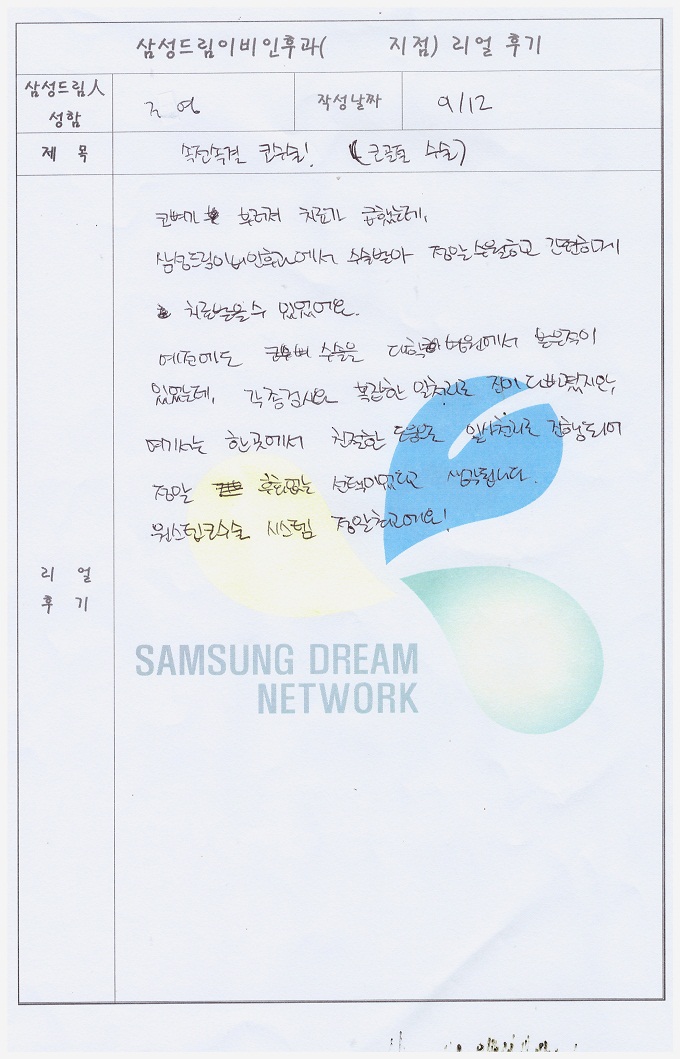 삼성드림이비인후과( 지점) 리얼 후기
삼성드림人 성함
작성날짜 9/12
제 목 속전속결 코수술! (코골절 수술)
코뼈가 부러져 치료가 급했는데,
삼성드림이비인후과에서 수술받아 정말 수월하고 간편하게
치료받을 수 있었어요.
예전에도 수술을 대학병원에서 받은적이
있었는데, 각종검사와 복잡한 일처리로 진이 다빠졌지만,
여기서는 한곳에서 친절한 도움으로 일사천리로 진행되어
정말 후회없는 선택이었다고 생각됩니다.
원스텝코수술 시스템 정말최고에요!
리 얼
후 기
SAMSUNG DREAM
NETWORK